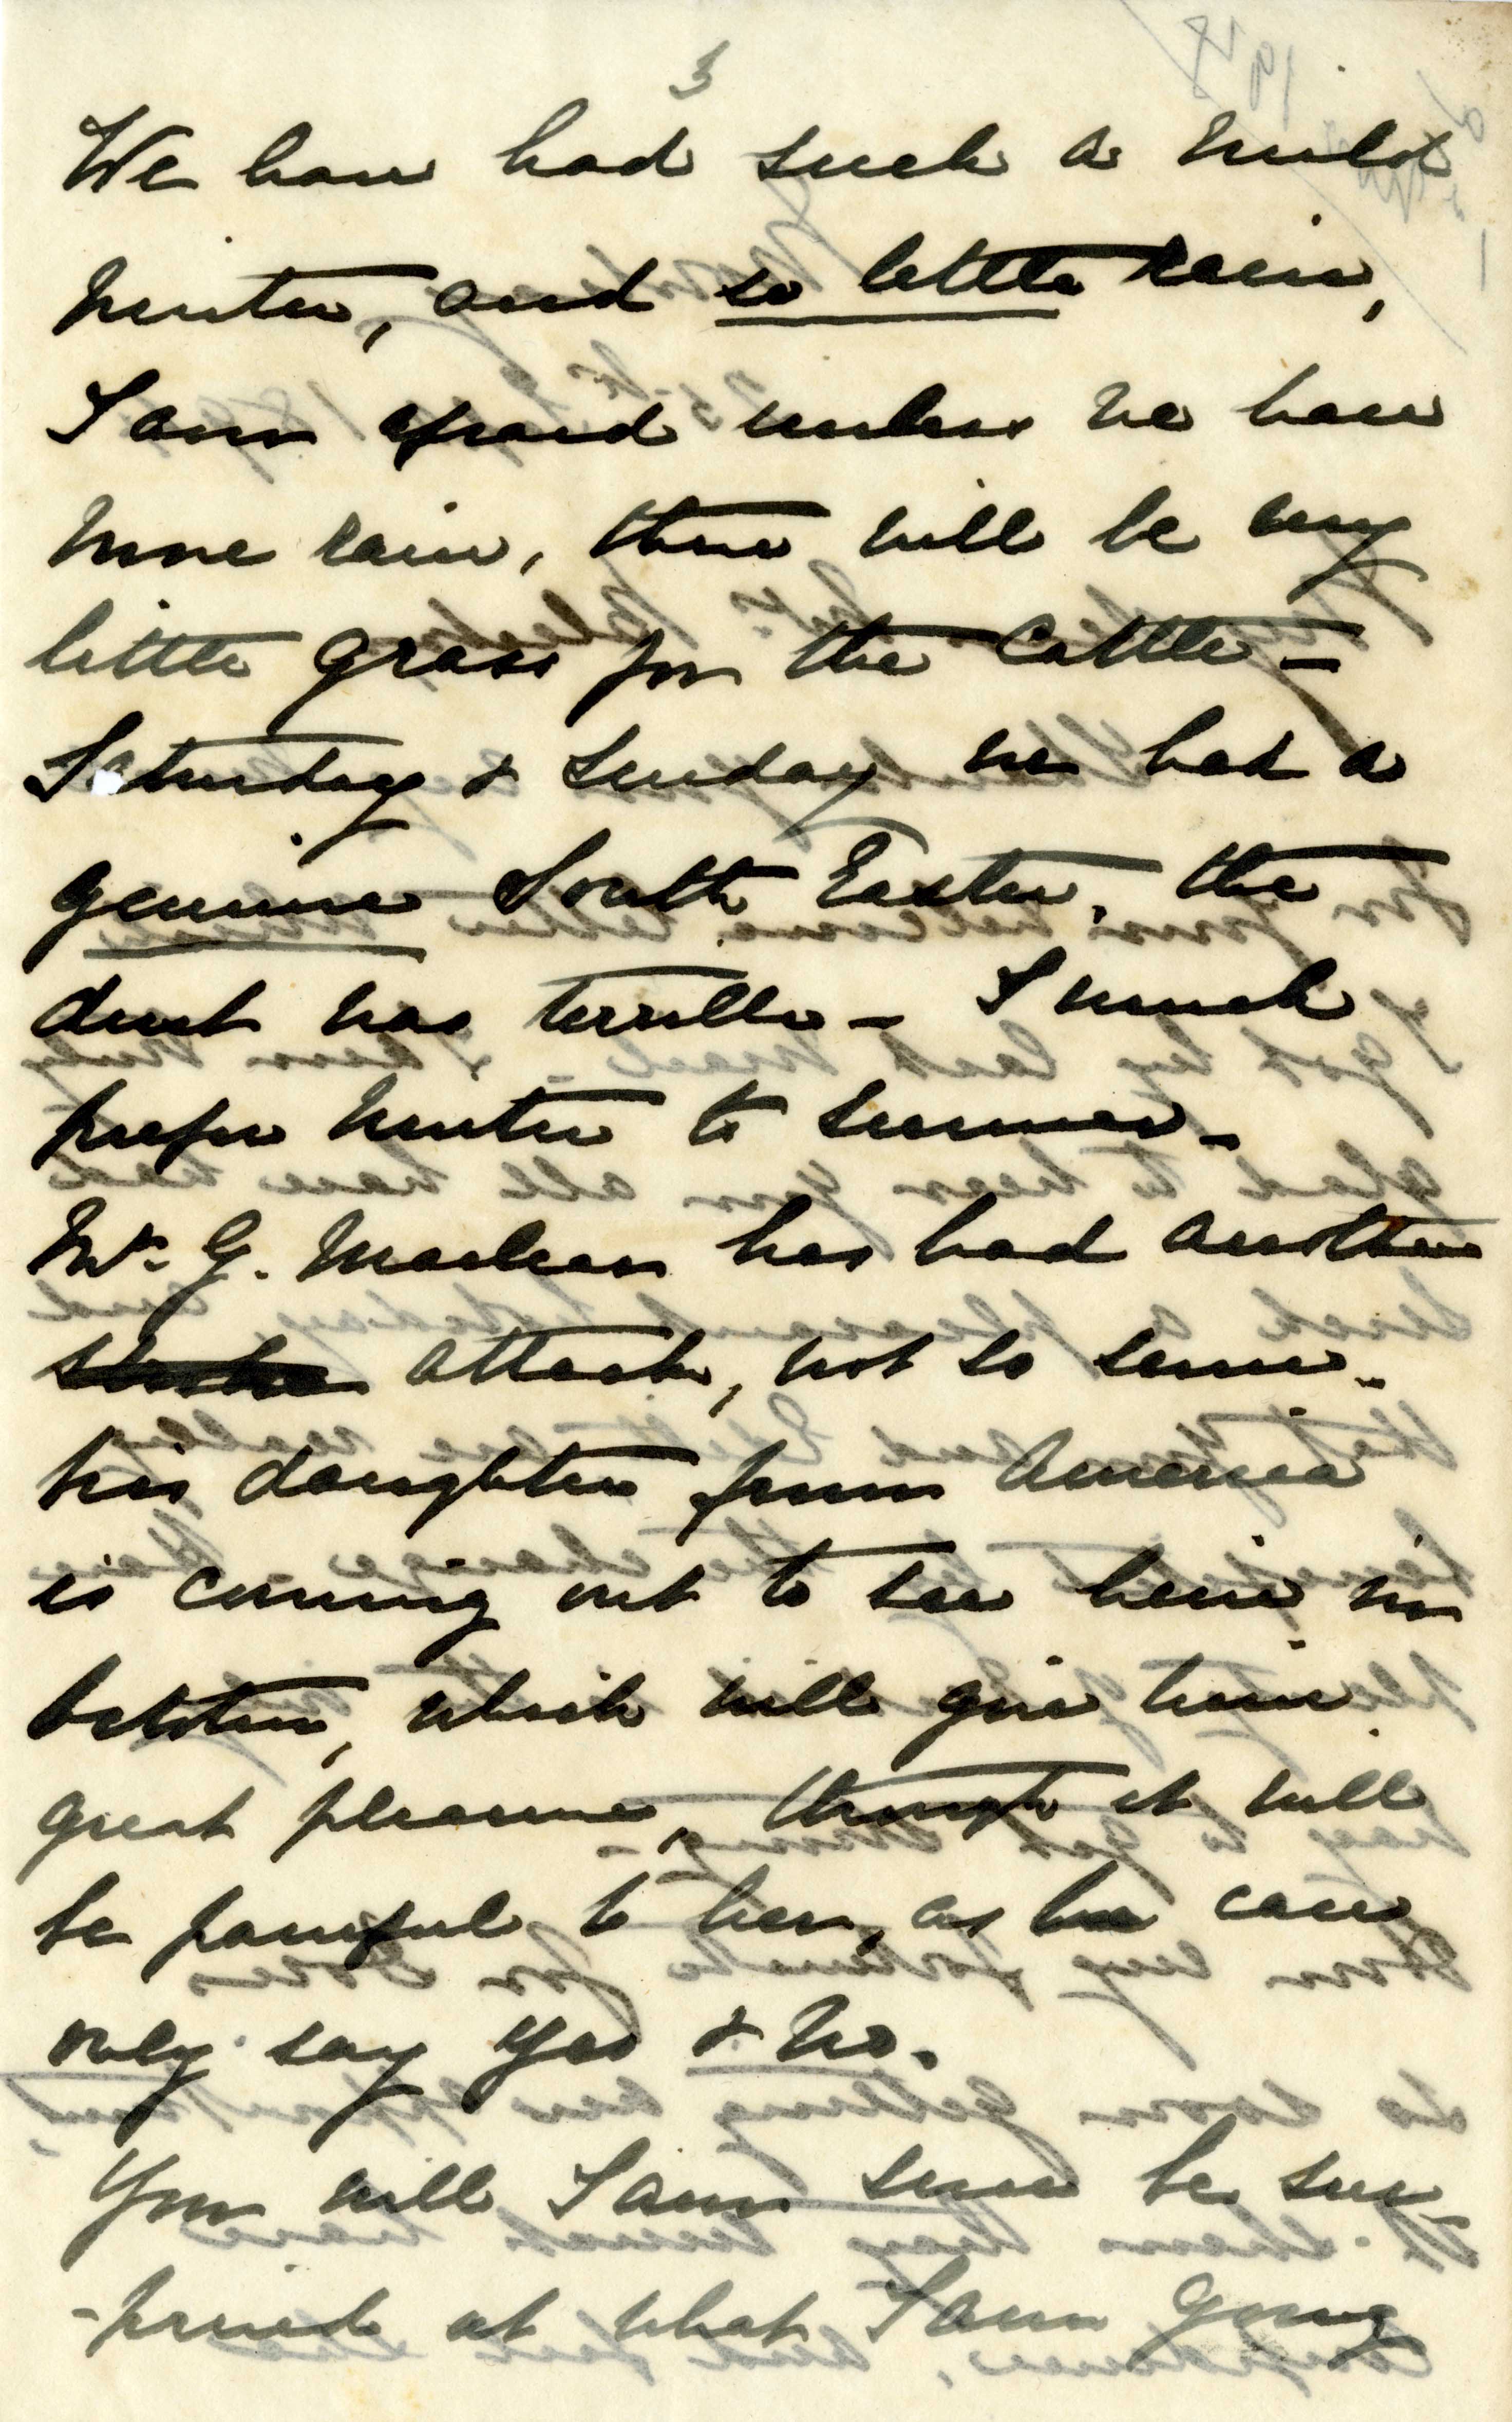 3
We have had such a mild
winter, and so little rain,
I am afraid unless we have
more rain, there will be very
little grass for the cattle -
Saturday & Sunday we had a
genuine South Easter, the
dust was terrible - I much
prefer winter to summer -
Mr. G. Maclean has had another
stroke attack, not so severe -
his daughter from America
is coming out to see him in
October, which will give him
great pleasure, though it will
be painful to her, as he can
only say Yes & No.
You will I am sure be sur-
-prised at what I am going